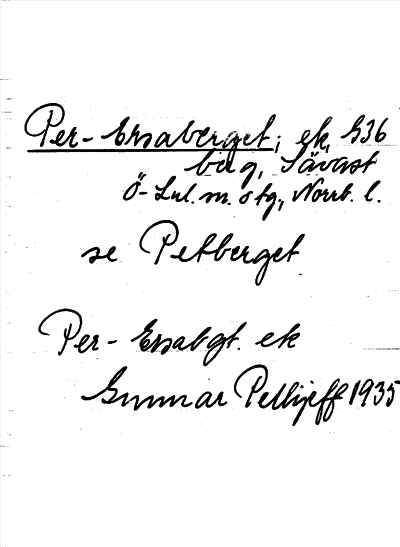 Per-Ersaberget; ek, G36
berg, Sävast
Ö-Lul. sn. o tg, Norrb. l.
se Petberget
Per-Ersabgt. ek
Gunnar Pellijeff 1935